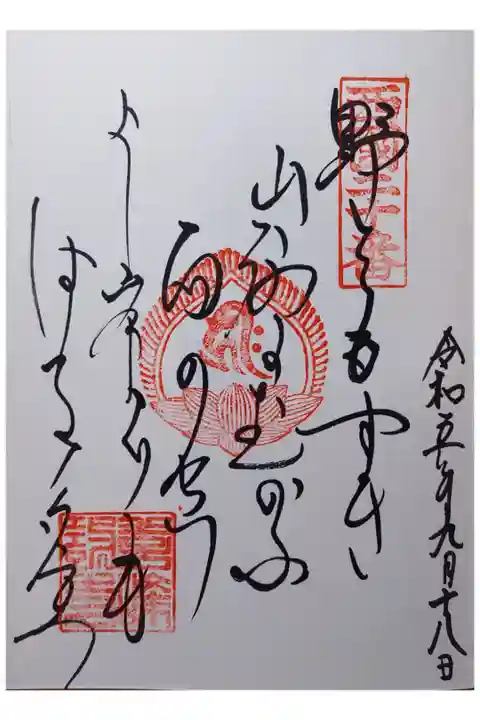 令和五年九月十八日
西國二十番
野をもすぎ
山路にむかふ
雨の空
よし峯よりも
はるゝ夕立